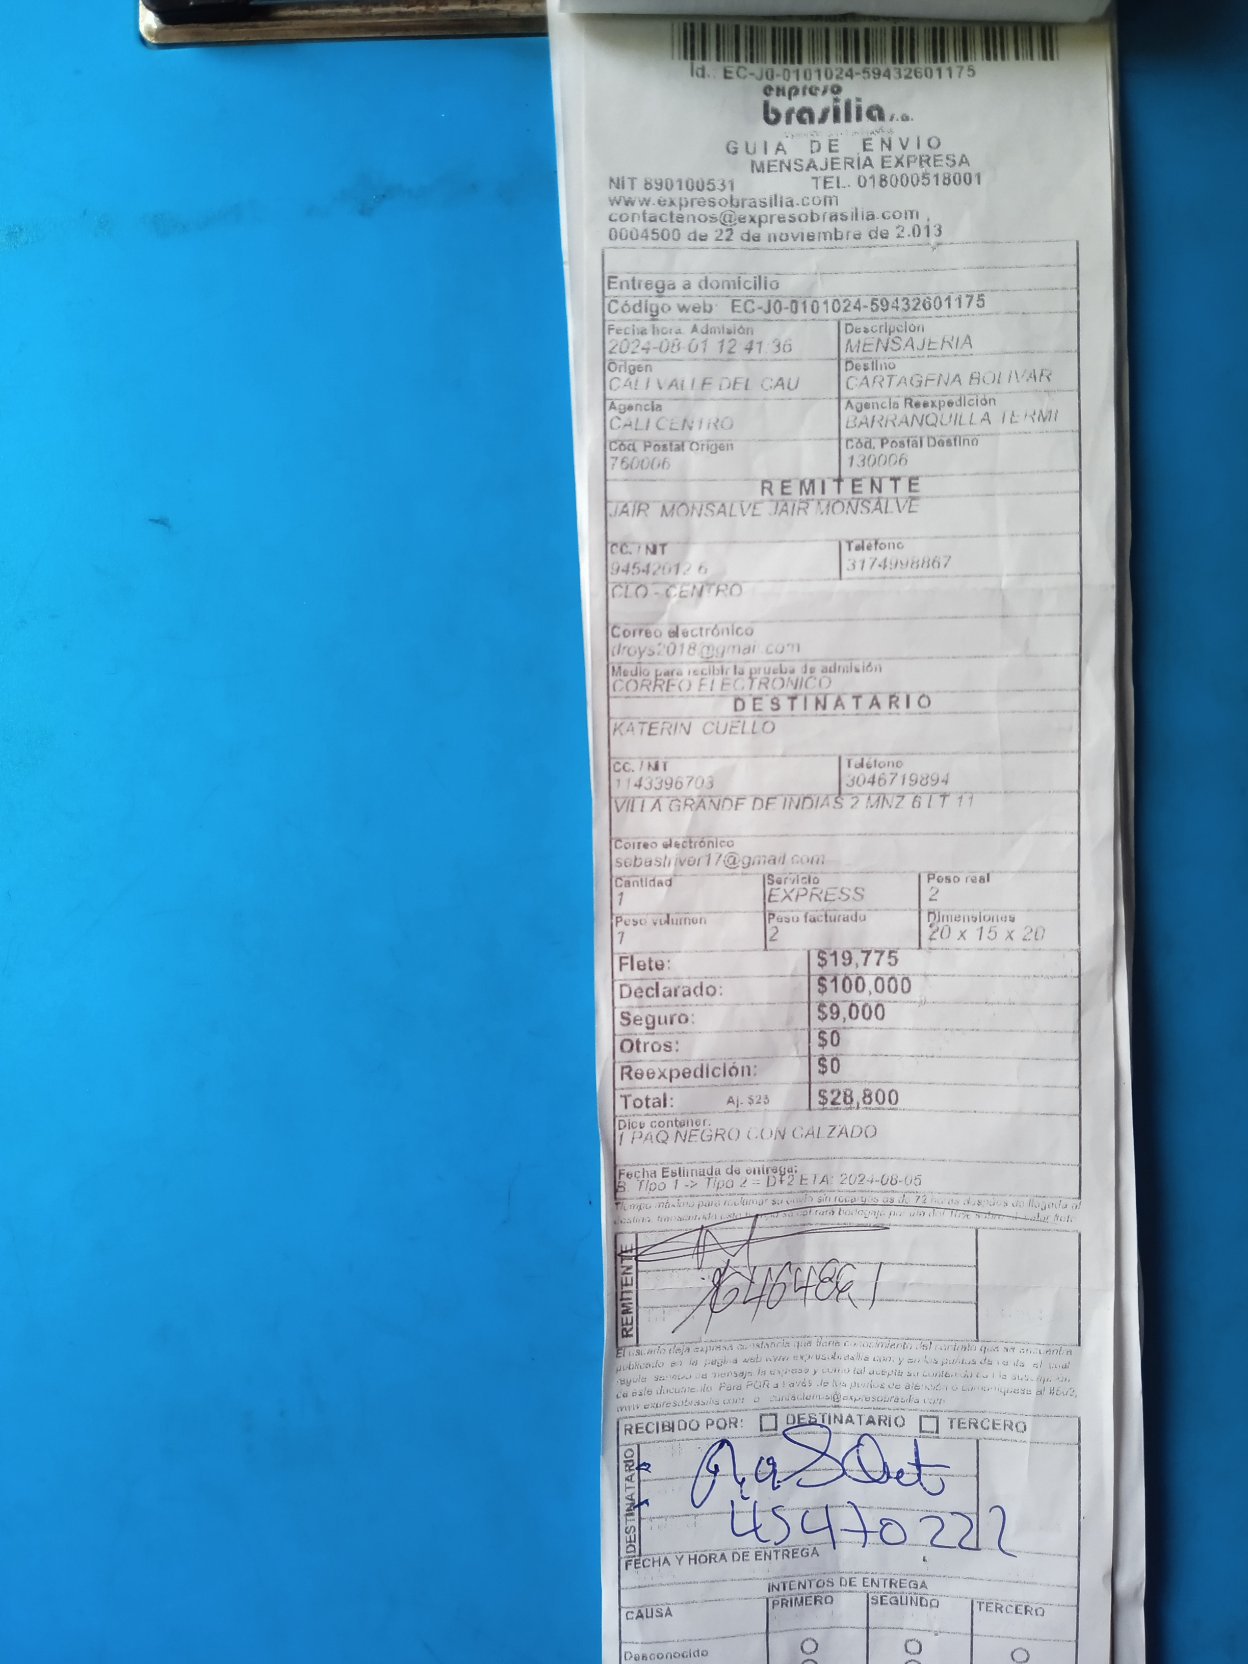 Id.: EC-J0-0101024-59432601175
expreso
brasilia s.a.
GUIA DE ENVIO
MENSAJERÍA EXPRESA
NIT 890100531 TEL. 018000518001
www.expresobrasilia.com
contactenos@expresobrasilia.com
0004500 de 22 de noviembre de 2.013
Entrega a domicilio
Código web: EC-J0-0101024-59432601175
Fecha hora Admisión Descripción
2024-08-01 12:41:36 MENSAJERIA
Origen Destino
CALI VALLE DEL CAU CARTAGENA BOLIVAR
Agencia Agencia Reexpedición
CALI CENTRO BARRANQUILLA TERMI
Cód. Postal Origen Cód. Postal Destino
760006 130006
REMITENTE
JAIR MONSALVE JAIR MONSALVE
CC. / NIT Teléfono
94542012 6 3174998867
CLO - CENTRO
Correo electrónico
droys2018@gmail.com
Medio para recibir la prueba de admisión
CORREO ELECTRONICO
DESTINATARIO
KATERIN CUELLO
CC. / NIT Teléfono
1143396703 3046719894
VILLA GRANDE DE INDIAS 2 MNZ 6 LT 11
Correo electrónico
sebashiver17@gmail.com
Cantidad Servicio Peso real
1 EXPRESS 2
Peso volumen Peso facturado Dimensiones
1 2 20 x 15 x 20
Flete: $19,775
Declarado: $100,000
Seguro: $9,000
Otros: $0
Reexpedición: $0
Total: Aj. $25 $28,800
Dice contener:
1 PAQ NEGRO CON CALZADO
Fecha Estimada de entrega:
S. Tipo 1 -> Tipo 2 = D+2 ETA: 2024-08-05
Tiempo máximo para reclamar su envío sin recargos es de 72 horas después de llegada al
REMITENTE
El usuario deja expresa constancia que tiene conocimiento del contrato que se encuentra
publicado en la página web www.expresobrasilia.com, y en los puntos de venta, el cual
de este documento. Para PQR a través de los puntos de atención o comuníquese al #502,
www.expresobrasilia.com o contactenos@expresobrasilia.com
RECIBIDO POR: DESTINATARIO TERCERO
DESTINATARIO
45470222
FECHA Y HORA DE ENTREGA
INTENTOS DE ENTREGA
CAUSA PRIMERO SEGUNDO TERCERO
Desconocido